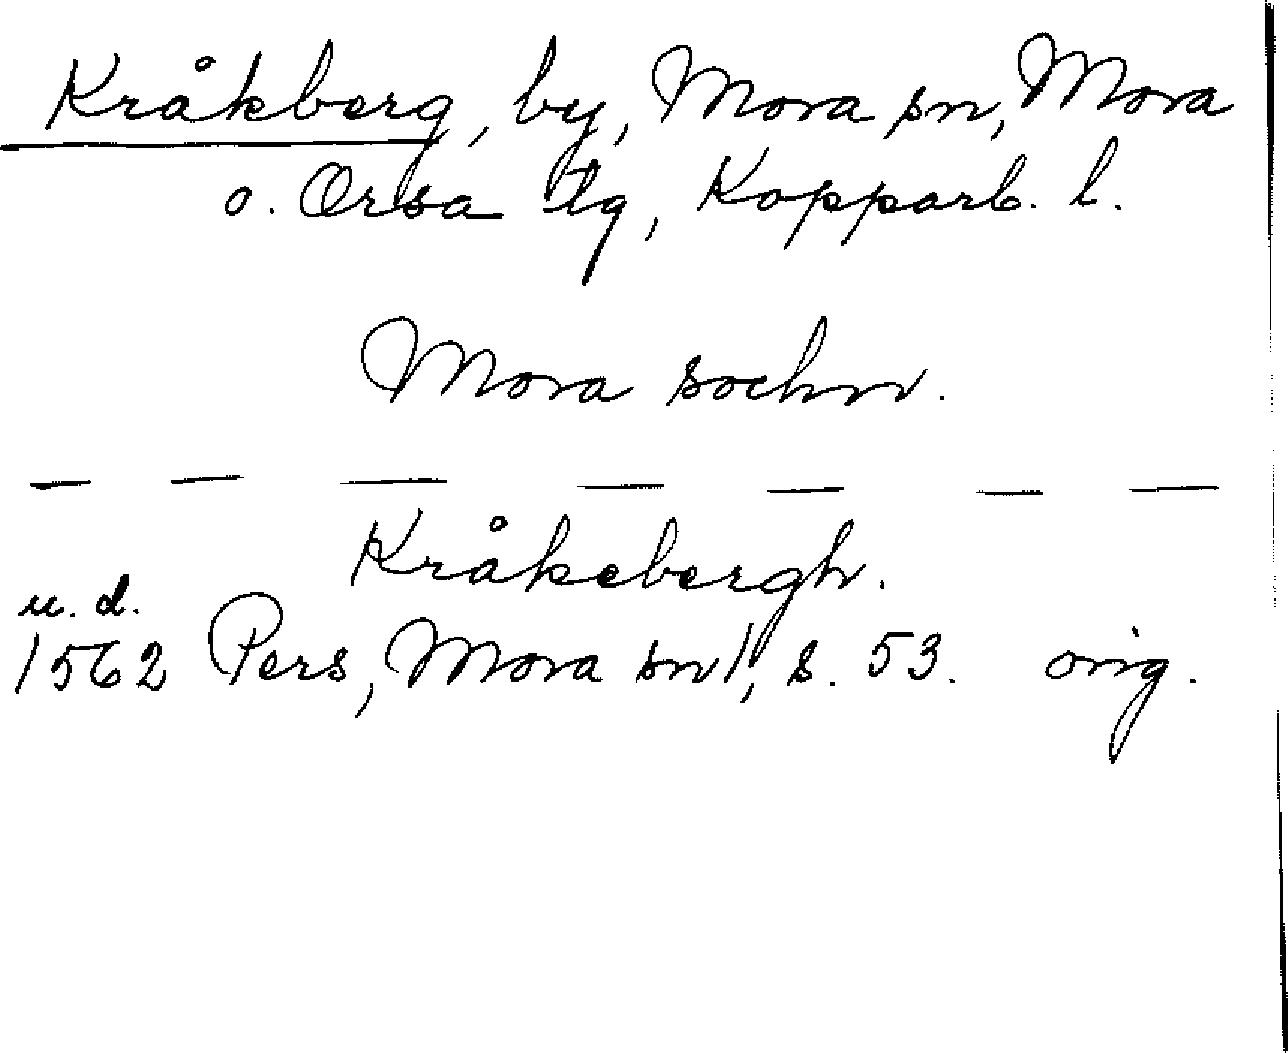 Kråkberg, by, Mora sn, Mora
o. Orsa tg, Kopparb. l.
Mora sochn.
— — — — — — —
Kråkebergh.
u. d.
1562 Pers, Mora sn 1, s. 53. orig.